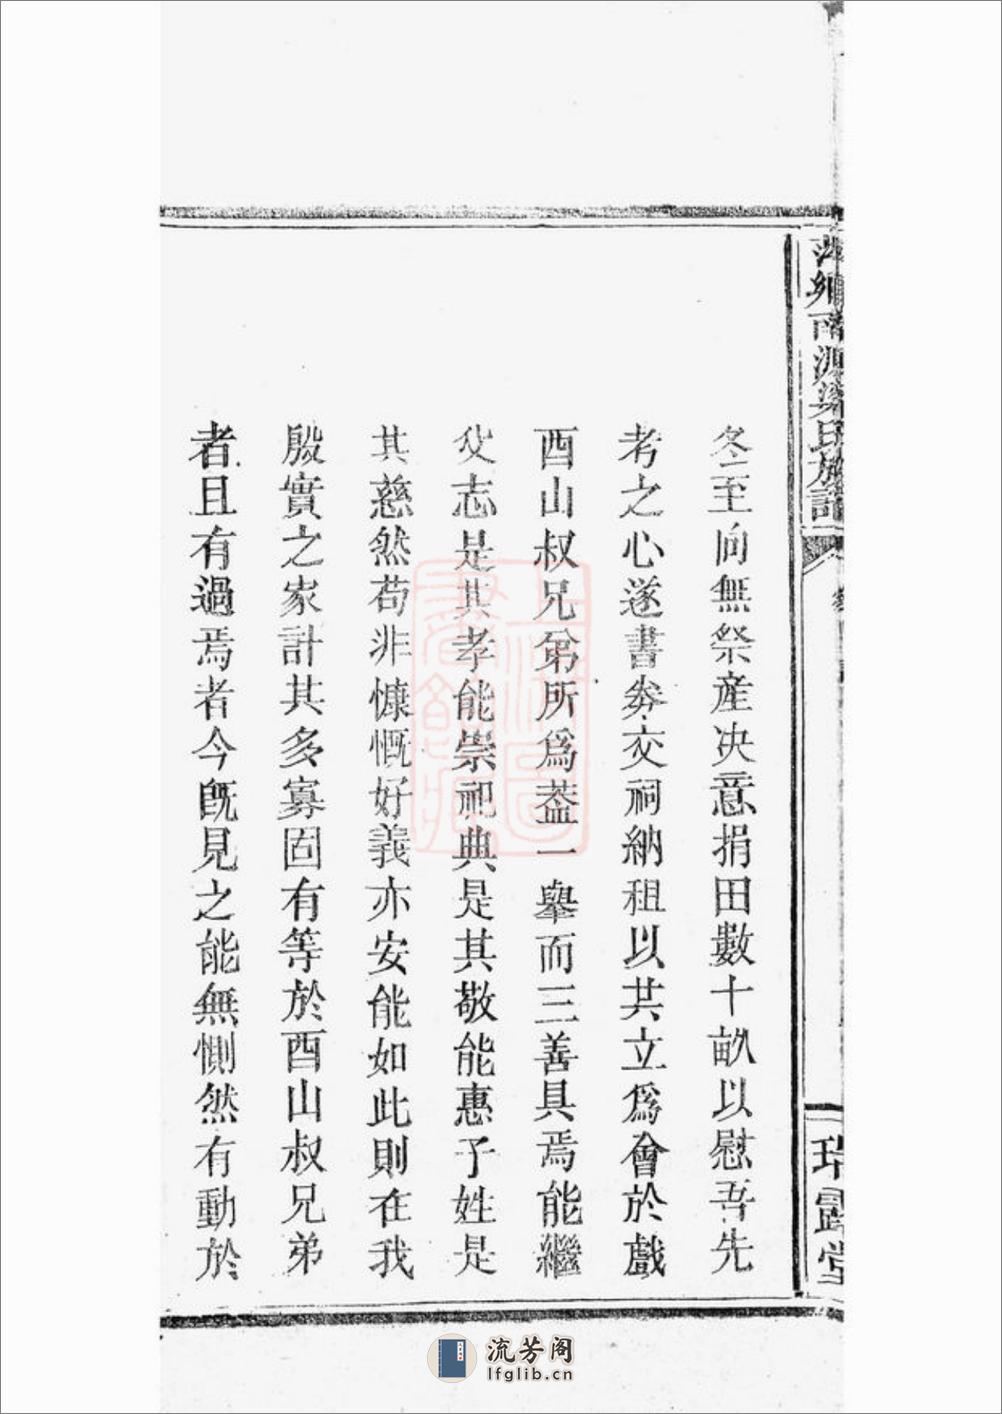 冬至向無祭產决意捐田數十畝以慰吾先
考之心遂書劵交祠納租以共立爲會於戲
酉山叔兄弟所爲葢一舉而三善具焉能繼
父志是其孝能崇祀典是其敬能惠予姓是
其慈然苟非慷慨好義亦安能如此則在我
殷實之家計其多寡固有等於酉山叔兄弟
者且有過焉者今旣見之能無惻然有動於
流芳阁
lfglib.cn